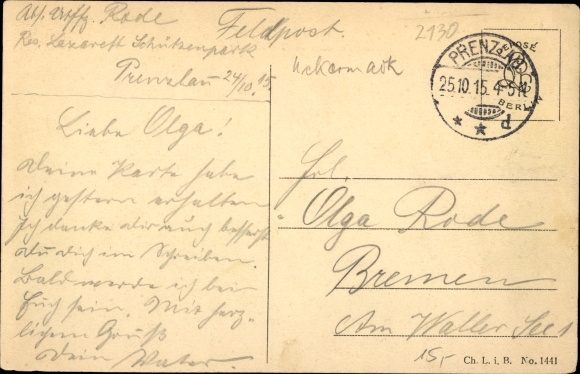 Abs. Uoffz. Rode
Feldpost.
2130
Res. Lazarett Schützenpark
Prenzlau 24/10. 15.
Uckermark
PRENZLAU
25.10.15. 4-5 N
d
BERLIN
Liebe Olga!
Deine Karte habe
ich gestern erhalten
Ich danke dir auch besserst
du dich im Schreiben.
Bald werde ich bei
Euch sein. Mit herz-
lichem Gruß
Dein Vater.
Frl.
Olga Rode
Bremen
Am Waller See
15,-
Ch. L. i. B. No. 1441